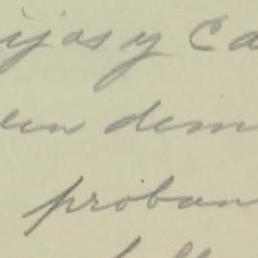 ijos y Ca
en dem
proban